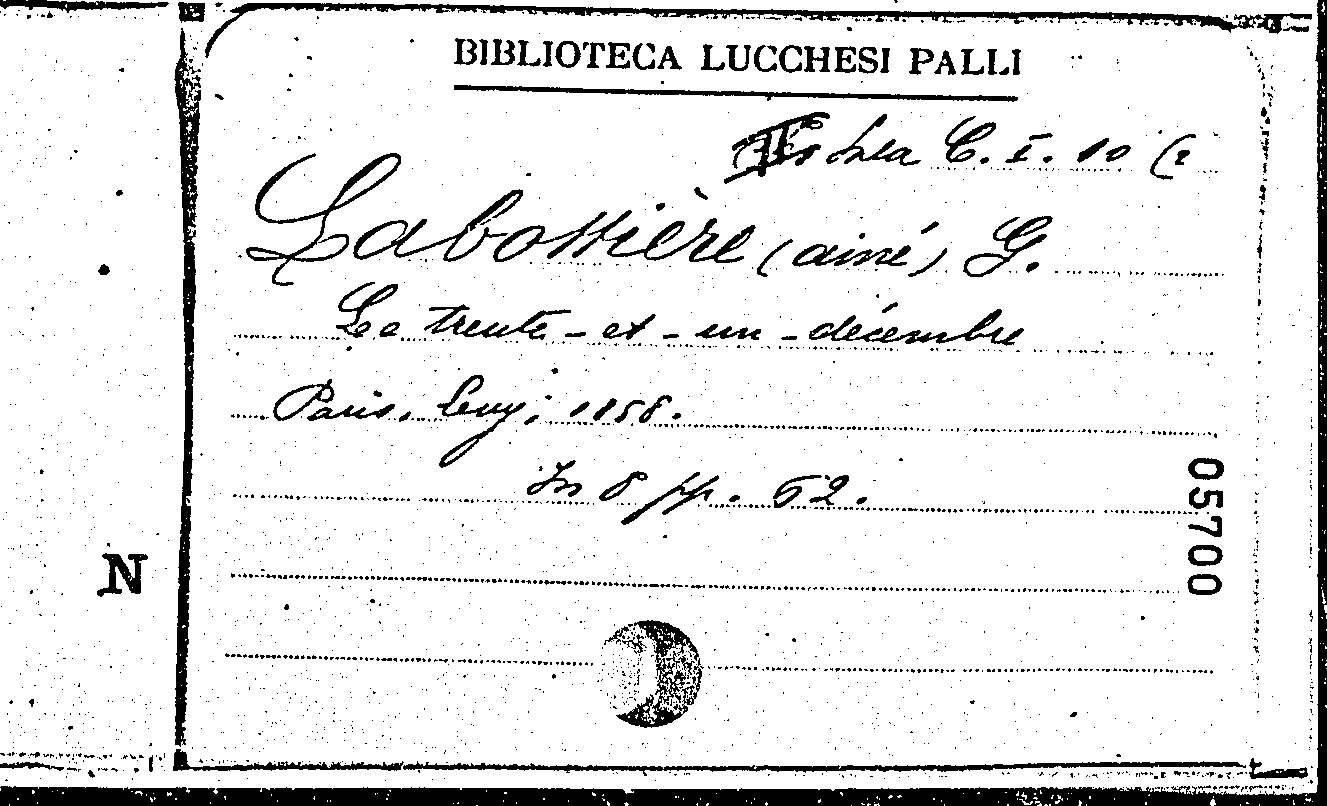 BIBLIOTECA LUCCHESI PALLI
C. I. 10 (2
Labottière (ainé) G.
Le trente-et-un-décembre
Paris, Levy; 1858.
In 8 pp. 52.
05700
N